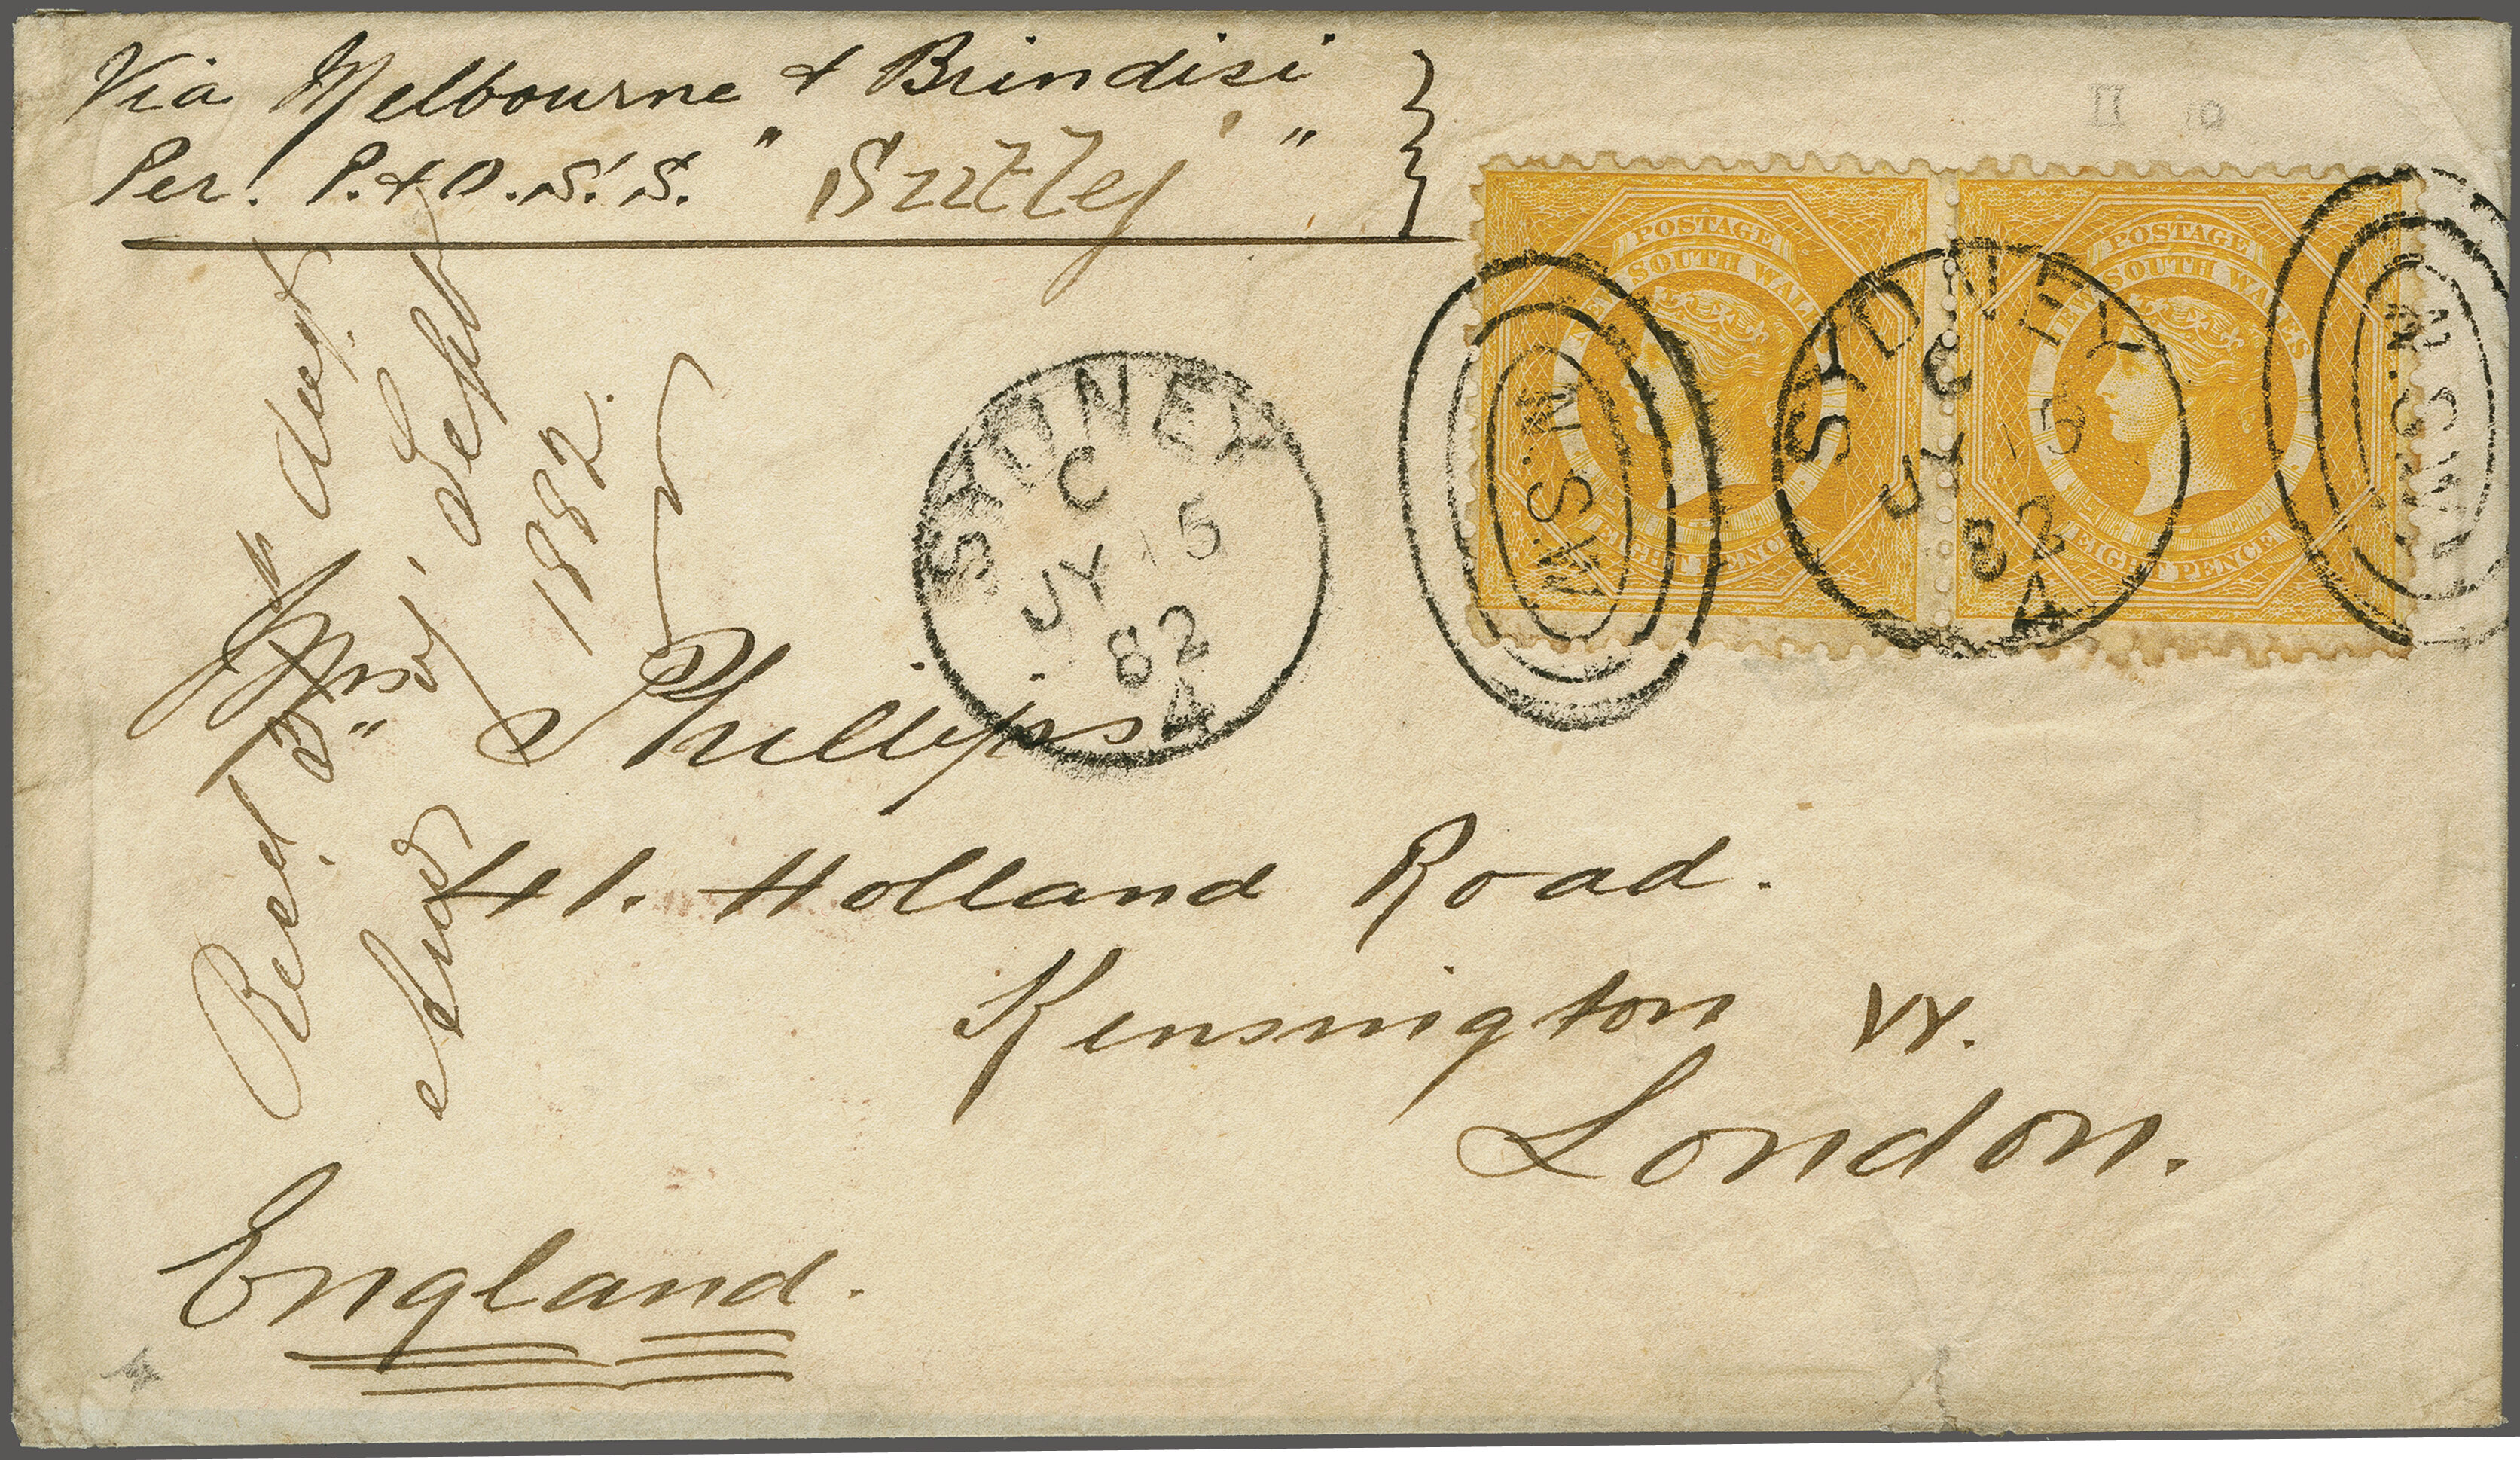 Via Melbourne & Brindisi
Per. P. & O. S. S. "Sutlej"
POSTAGE
NEW SOUTH WALES
EIGHT PENCE
POSTAGE
NEW SOUTH WALES
EIGHT PENCE
N.S.W
SYDNEY
C
JY 15
82
4
N.S.W
SYDNEY
C
JY 15
82
4
Mrs Phillips
41. Holland Road.
Kensington W.
London.
England.
Recd 3" Augt
Sept
1882.